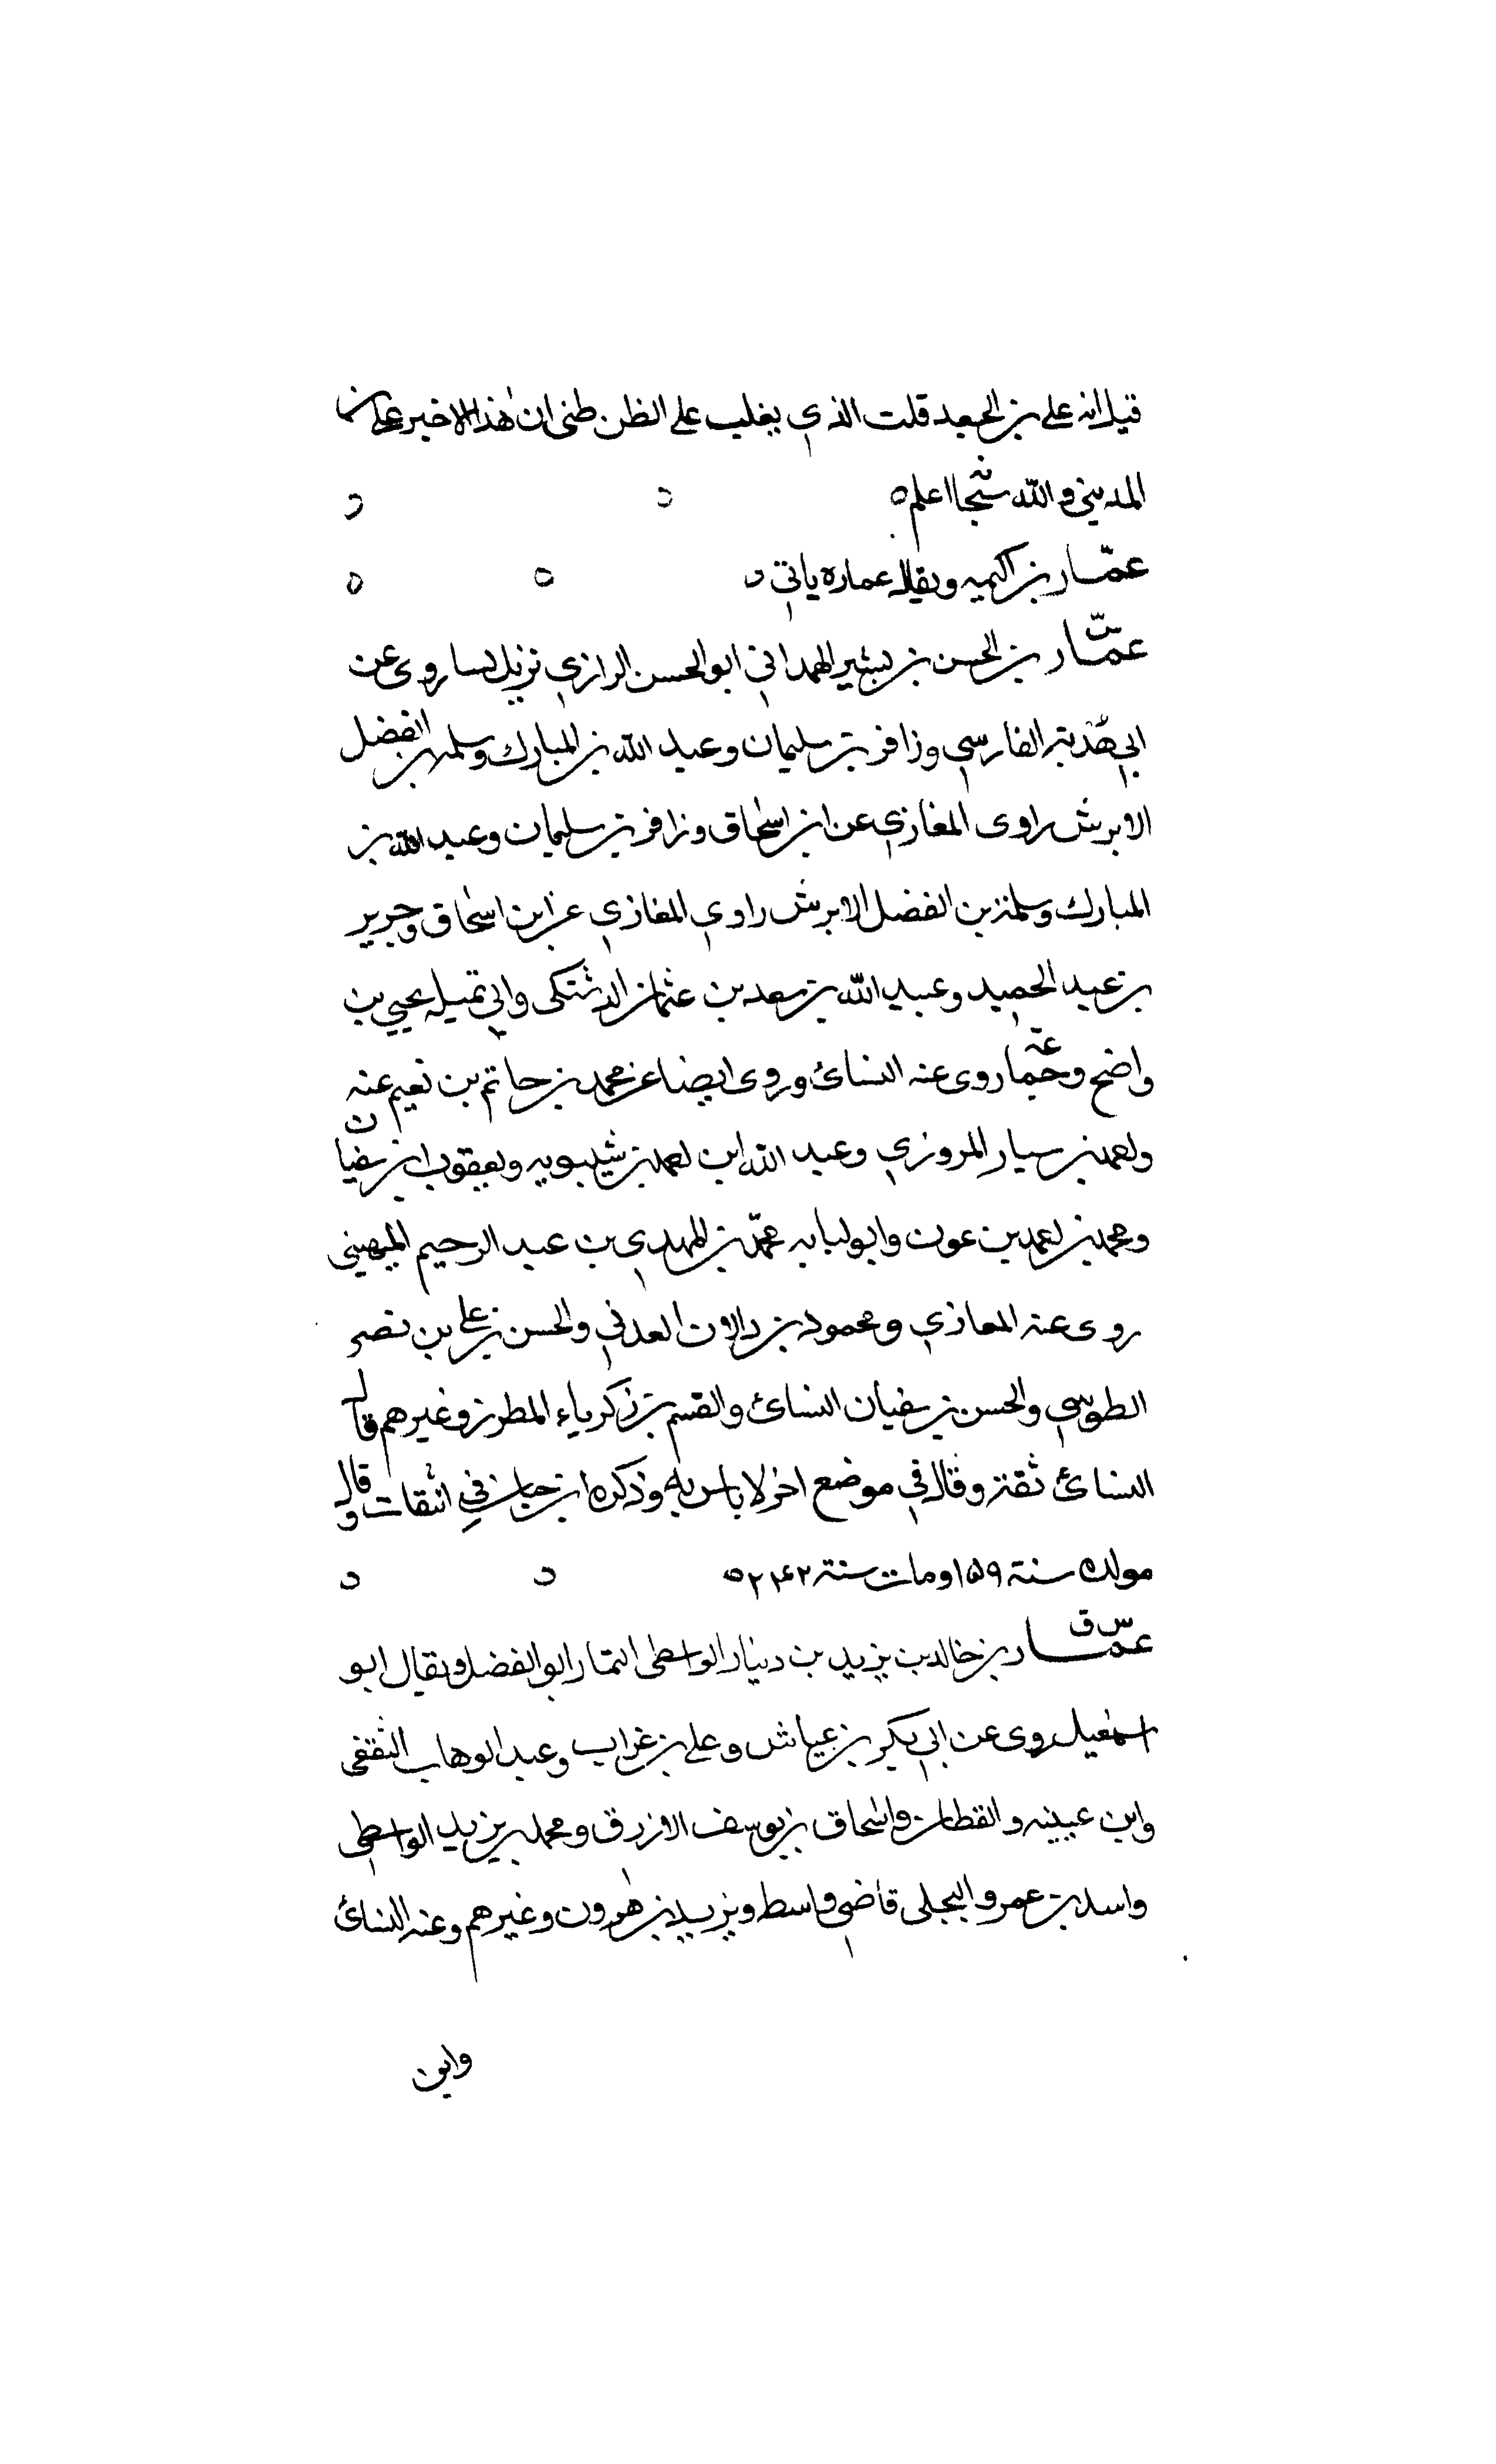 قيل انه على بن الجعد قلت الذي يغلب على الظن ظنى ان هذا الاخير على بن
المدينى والله سبحانه اعلم ٥
عمّار بن اكيمه ويقال عمارة ياتي
عمّار بن الحسن بن بشير الهمداني ابو الحسن الرازي نزيل نسا روى عن
ابي هدبة الفارسي وزافر بن سليمان وعبد الله بن المبارك وسلمه بن الفضل
الابرش راوى المغازي عن ابن اسحاق وزافر بن سليمان وعبد الله بن
المبارك وسلمة بن الفضل الابرش راوي المغازي عن ابن اسحاق وجرير
بن عبد الحميد وعبد الله بن سعد بن عثمان الدشتكى وابي تميله يحيي بن
واضح وجماعة روى عنه النسائ وروى ايضا عن محمد بن حاتم بن نعيم عنه
واحمد بن سيار المروزي وعبد الله ابن احمد بن شبويه ويعقوب ابن سفيان
ومحمد بن احمد بن عون وابو لبابه محمّد بن المهدي بن عبد الرحيم الميهينى
روى عنه المغازي ومحمود بن والان العدني والحسن بن على بن نصر
الطوسي والحسن بن سفيان النسائ والقسم بن زكرياء المطرز وغيرهم قال
النسائ ثقة وقال في موضع اخر لا باس به وذكره ابن حبان في الثقات وقال
مولده سنة ١٥٩ ومات سنة ٢٤٢ ٥
س ق
عمّار بن خالد بن يزيد بن دينار الواسطى التمار ابو الفضل ويقال ابو
اسمعيل روى عن ابي بكر بن عياش وعلى بن غراب وعبد الوهاب الثقفى
وابن عيينه والقطان واسحاق بن يوسف الازرق ومحمد بن يزيد الواسطى
واسد بن عمرو البجلى قاضي واسط ويزيد بن هرون وغيرهم وعنه النسائ
وابن